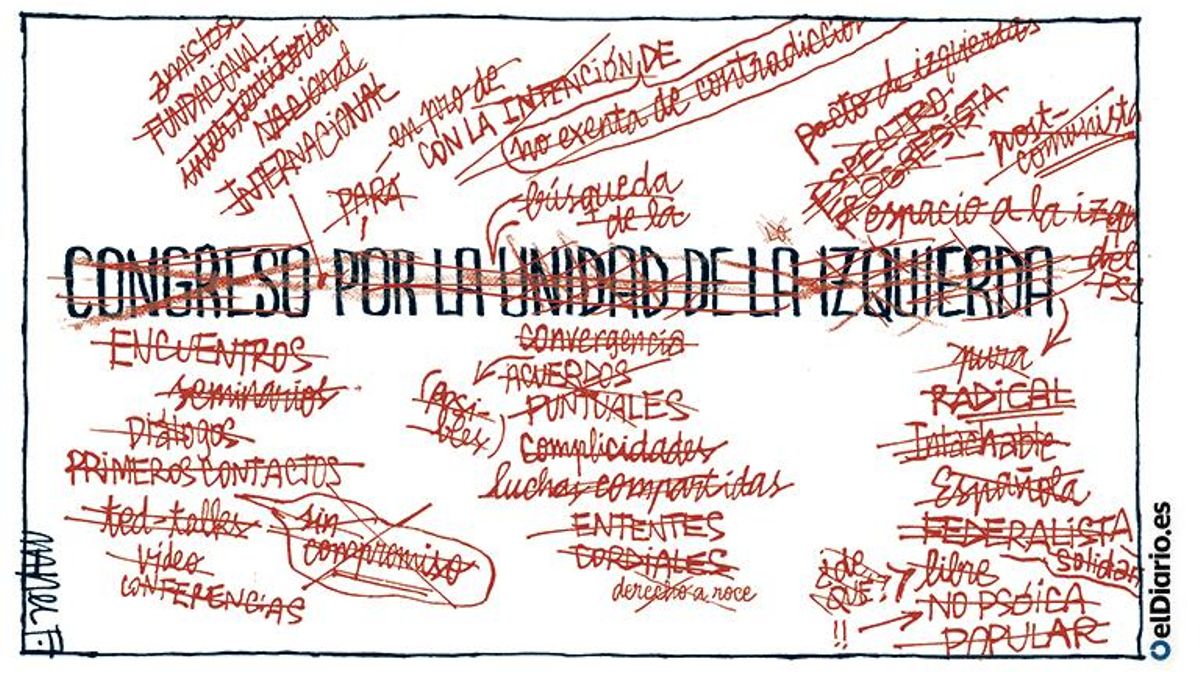 amistoso
FUNDACIONAL
interterritorial
NACIONAL
INTERNACIONAL
PARA
en pro de
CON LA INTENCIÓN DE
no exenta de contradicción
búsqueda
de la
pacto de izquierdas
ESPECTRO
PROGRESISTA
post-
comunista
espacio a la izq
del
PSC
CONGRESO POR LA UNIDAD DE LA IZQUIERDA
ENCUENTROS
seminarios
Diálogos
PRIMEROS CONTACTOS
ted-talks
video
CONFERENCIAS
sin
compromiso
convergencia
ACUERDOS
PUNTUALES
(posi-
bles)
Complicidades
luchas compartidas
ENTENTES
CORDIALES
derecho a roce
pura
RADICAL
Intachable
Española
FEDERALISTA
Solidar
libre
¿de
QUÉ?
!!
NO PSÓICA
POPULAR
elDiario.es